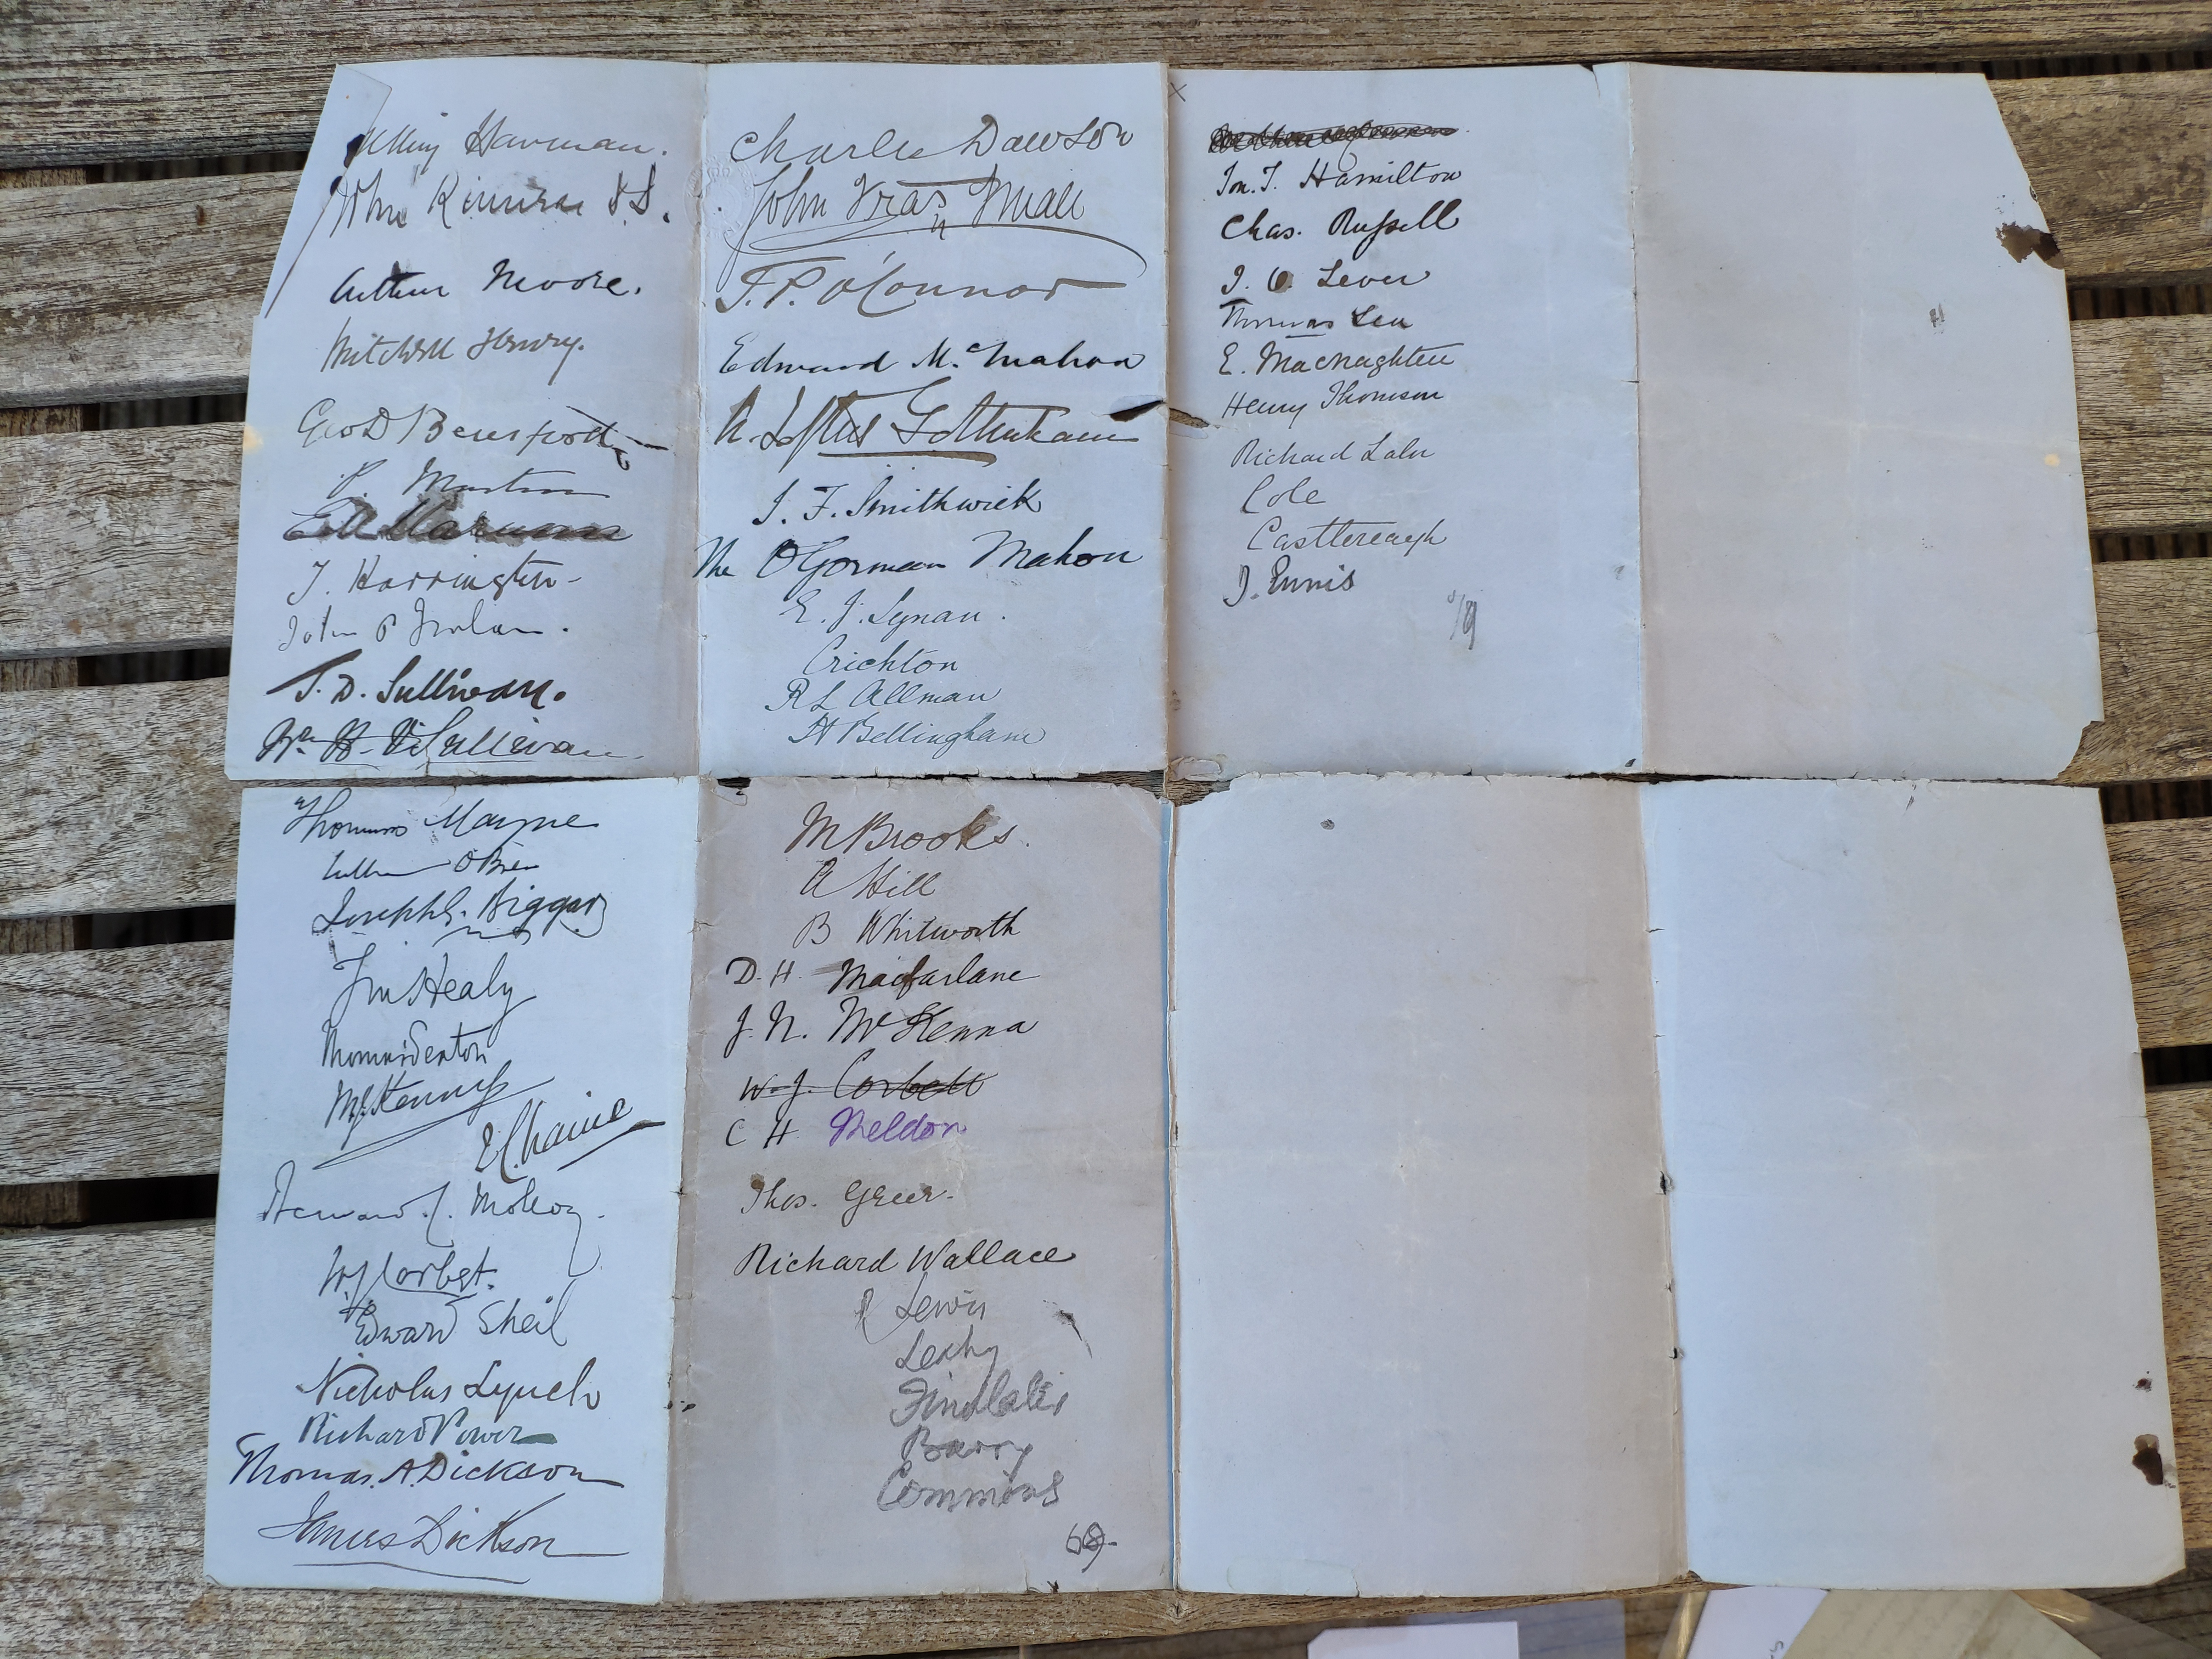 Harman.
John Kinnear D.D.
Arthur Moore.
Mitchell Henry.
Geo D Beresford
P. Martin
E M Marum
T. Harrington
John P Nolan.
T. D. Sullivan.
Wm H. O'Sullivan.
Charles Dawson
John Small
T. P. O'Connor
Edward McMahon
A. Loftus Tottenham
J. F. Smithwick
The O'Gorman Mahon
E. J. Synan.
Crichton
R L Allman
H Bellingham
Ion. T. Hamilton
Chas. Russell
J. O. Lever
Thomas Lea
E. Macnaghten
Henry Thomson
Richard Lalor
Cole
Castlereagh
J. Ennis
Thomas Mayne
O'Brien
Joseph G. Biggar
T M Healy
Thomas Sexton
M J Kenny
J Chaine
Bernard C. Molloy.
W J Corbet.
Edward Sheil
Nicholas Lynch
Richard Power
Thomas. A. Dickson
James Dickson
M Brooks.
A Hill
B Whitworth
D. H. Macfarlane
J. N. McKenna
W. J. Corbett
C H Meldon
Thos. Greer.
Richard Wallace
Lewis
Leahy
Findlater
Barry
Commins